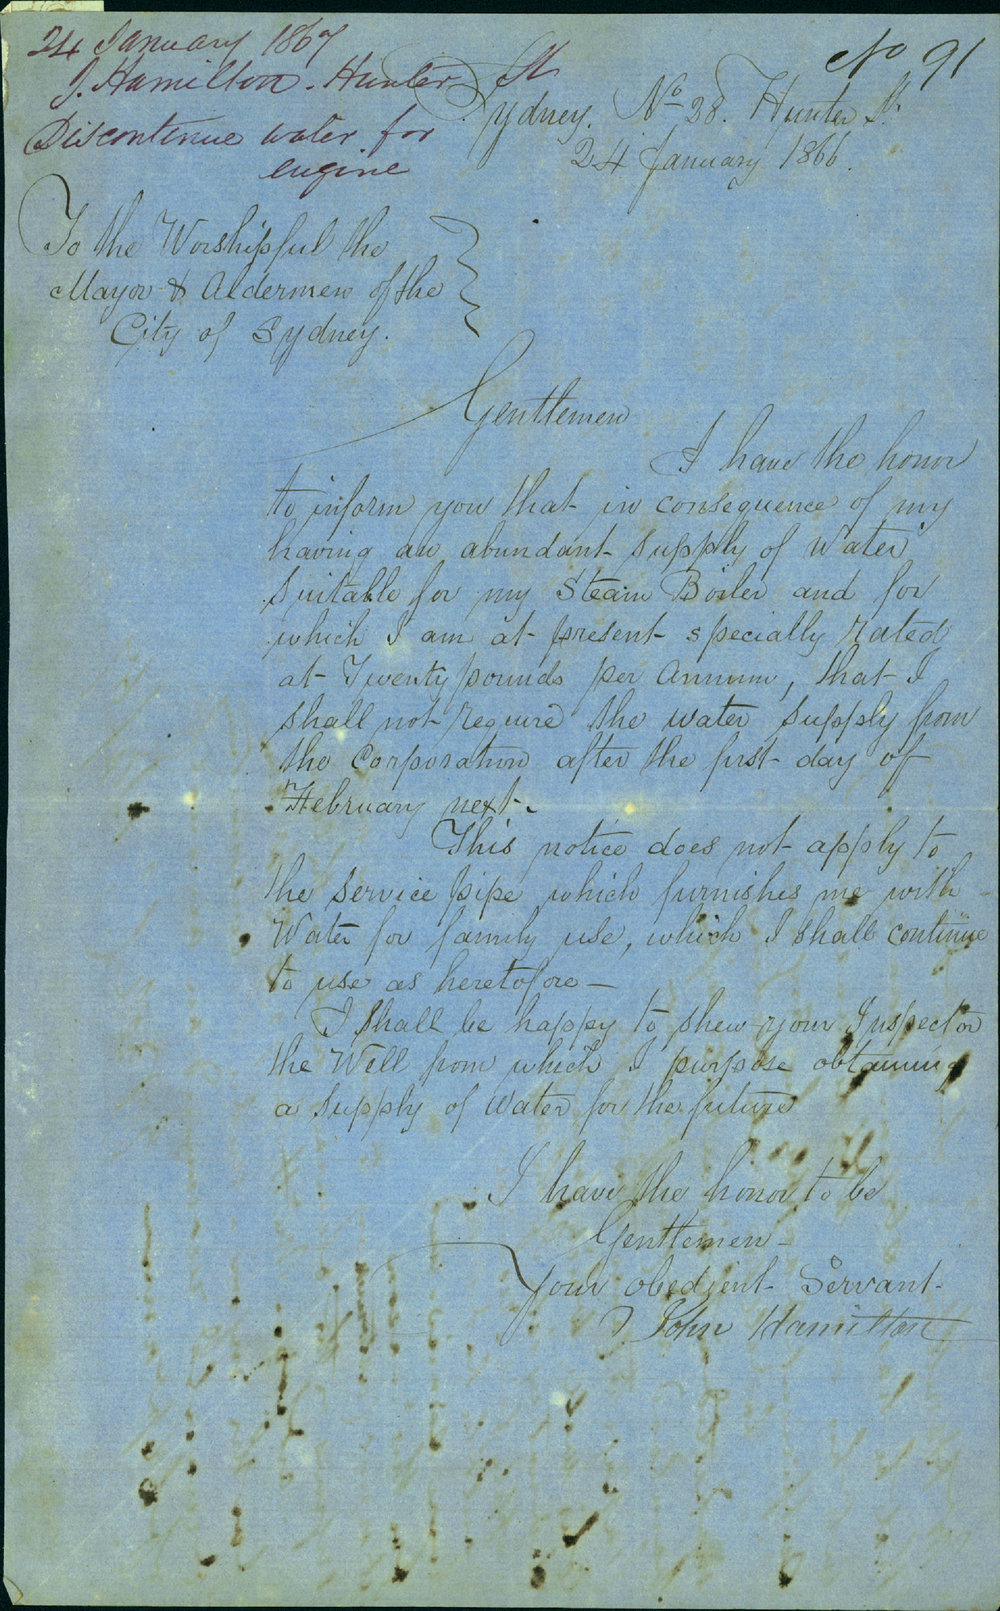 24 January 1867
J. Hamilton. Hunter St
Discontinue water for
engine
No 91
Sydney. No 28. Hunter St.
24 January 1866.
To the Worshipful the
Mayor & Aldermen of the
City of Sydney.
Gentlemen
I have the honor
to inform you that in consequence of my
having an abundant supply of Water
suitable for my Steam Boiler and for
which I am at present specially rated
at Twenty pounds per Annum, that I
shall not require the water supply from
the Corporation after the first day of
February next.
This notice does not apply to
the service pipe which furnishes me with
Water for family use, which I shall continue
to use as heretofore —
I shall be happy to shew your Inspector
the Well from which I purpose obtaining
a supply of Water for the future
I have the honor to be
Gentlemen —
Your obedient Servant.
John Hamilton